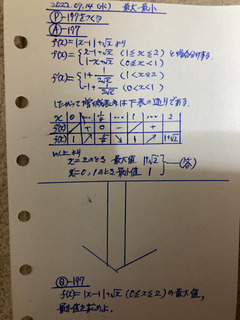 2022.09.14 (水) 最大・最小
(P)-197をつくる
(A)-197
f(x)=|x-1|+√x より
f(x)={x-1+√x (1≦x≦2) と場合分けする。
1-x+√x (0≦x<1)
f'(x)={1+1/2√x (1<x≦2)
-1+1/2√x (0<x<1)
したがって増減表は下表の通りである。
x 0 … 1/4 … 1 … 2
f'(x) + 0 - +
f(x) 1 ↗ 5/4 ↘ 1 ↗ 1+√2
以上より
x=2のとき 最大値 1+√2
x=0,1のとき 最小値 1 ―(答)
(Q)-197
f(x)=|x-1|+√x (0≦x≦2)の最大値,
最小値を求めよ.